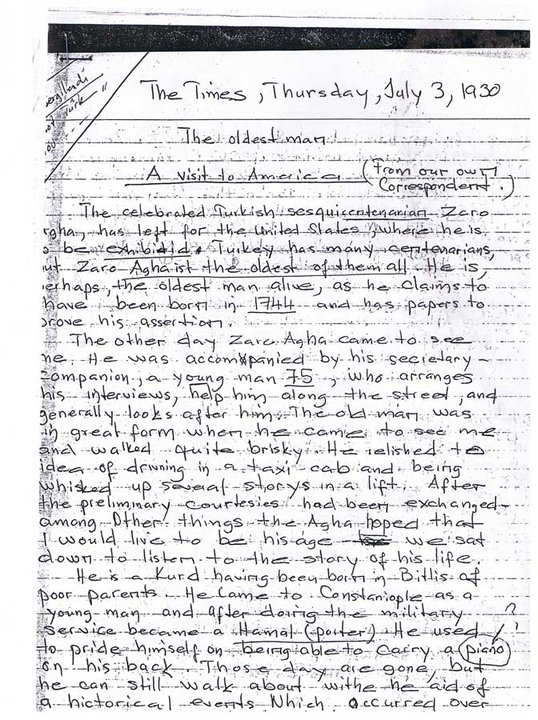 The Times, Thursday, July 3, 1930
The oldest man
A visit to Ameica (From our own
Correspondent.)
The celebrated Turkish sesquicentenarian Zaro
gha, has left for the United Stales, where he is
o be exhibitid. Turkey has many centenarians,
ut Zaro Aghaist the oldest of them all. He is,
erhaps, the oldest man alive, as he claims to
have been born in 1744 and has papers to
prove his assertion.
The other day Zaro Agha came to see
me. He was accompanied by his secretary-
companion, a young man 75, who arranges
his interviews, help him along the streed, and
generally looks after him. The old man was
in great form when he came to see me
and walked quite brisky. He relished te
idea of driwing in a taxi-cab and being
whisked up several storys in a lift. After
the preliminary courtesies had been exchanged-
among. Other things the Agha hoped that
I would live to be his age we sat
down to listen to the story of his life.
He is a Kurd having been born in Bitlis of
poor parents. He came to Constaniople as a
young man and after doing the military ?
service became a Hamal (porter). He used !?
to pride himself on being able to carry a (piano)
on his back. Those day are gone, but
he can still walk about withe he aid of
a hictorical events Which occurred over